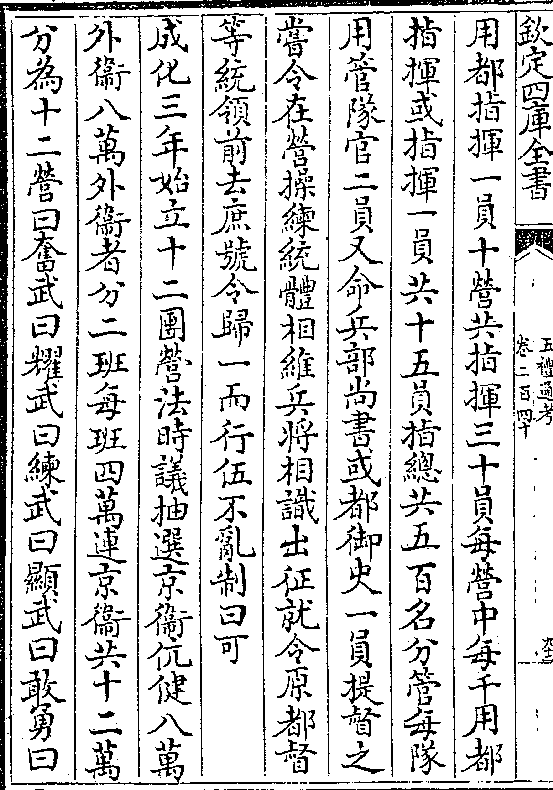 欽定四庫全書
五禮通考
卷二百四十
用都指揮一員十營共指揮三十員每營中每千用都
指揮或指揮一員共十五員指總共五百名分管每隊
用管隊官二員又命兵部尚書或都御史一員提督之
嘗令在營操練統體相維兵將相識出征就令原都督
等統領前去庶號令歸一而行伍不亂制曰可
成化三年始立十二團營法時議抽選京衞伉健八萬
外衞八萬外衞者分二班每班四萬連京衞共十二萬
分為十二營曰奮武曰耀武曰練武曰顯武曰敢勇曰